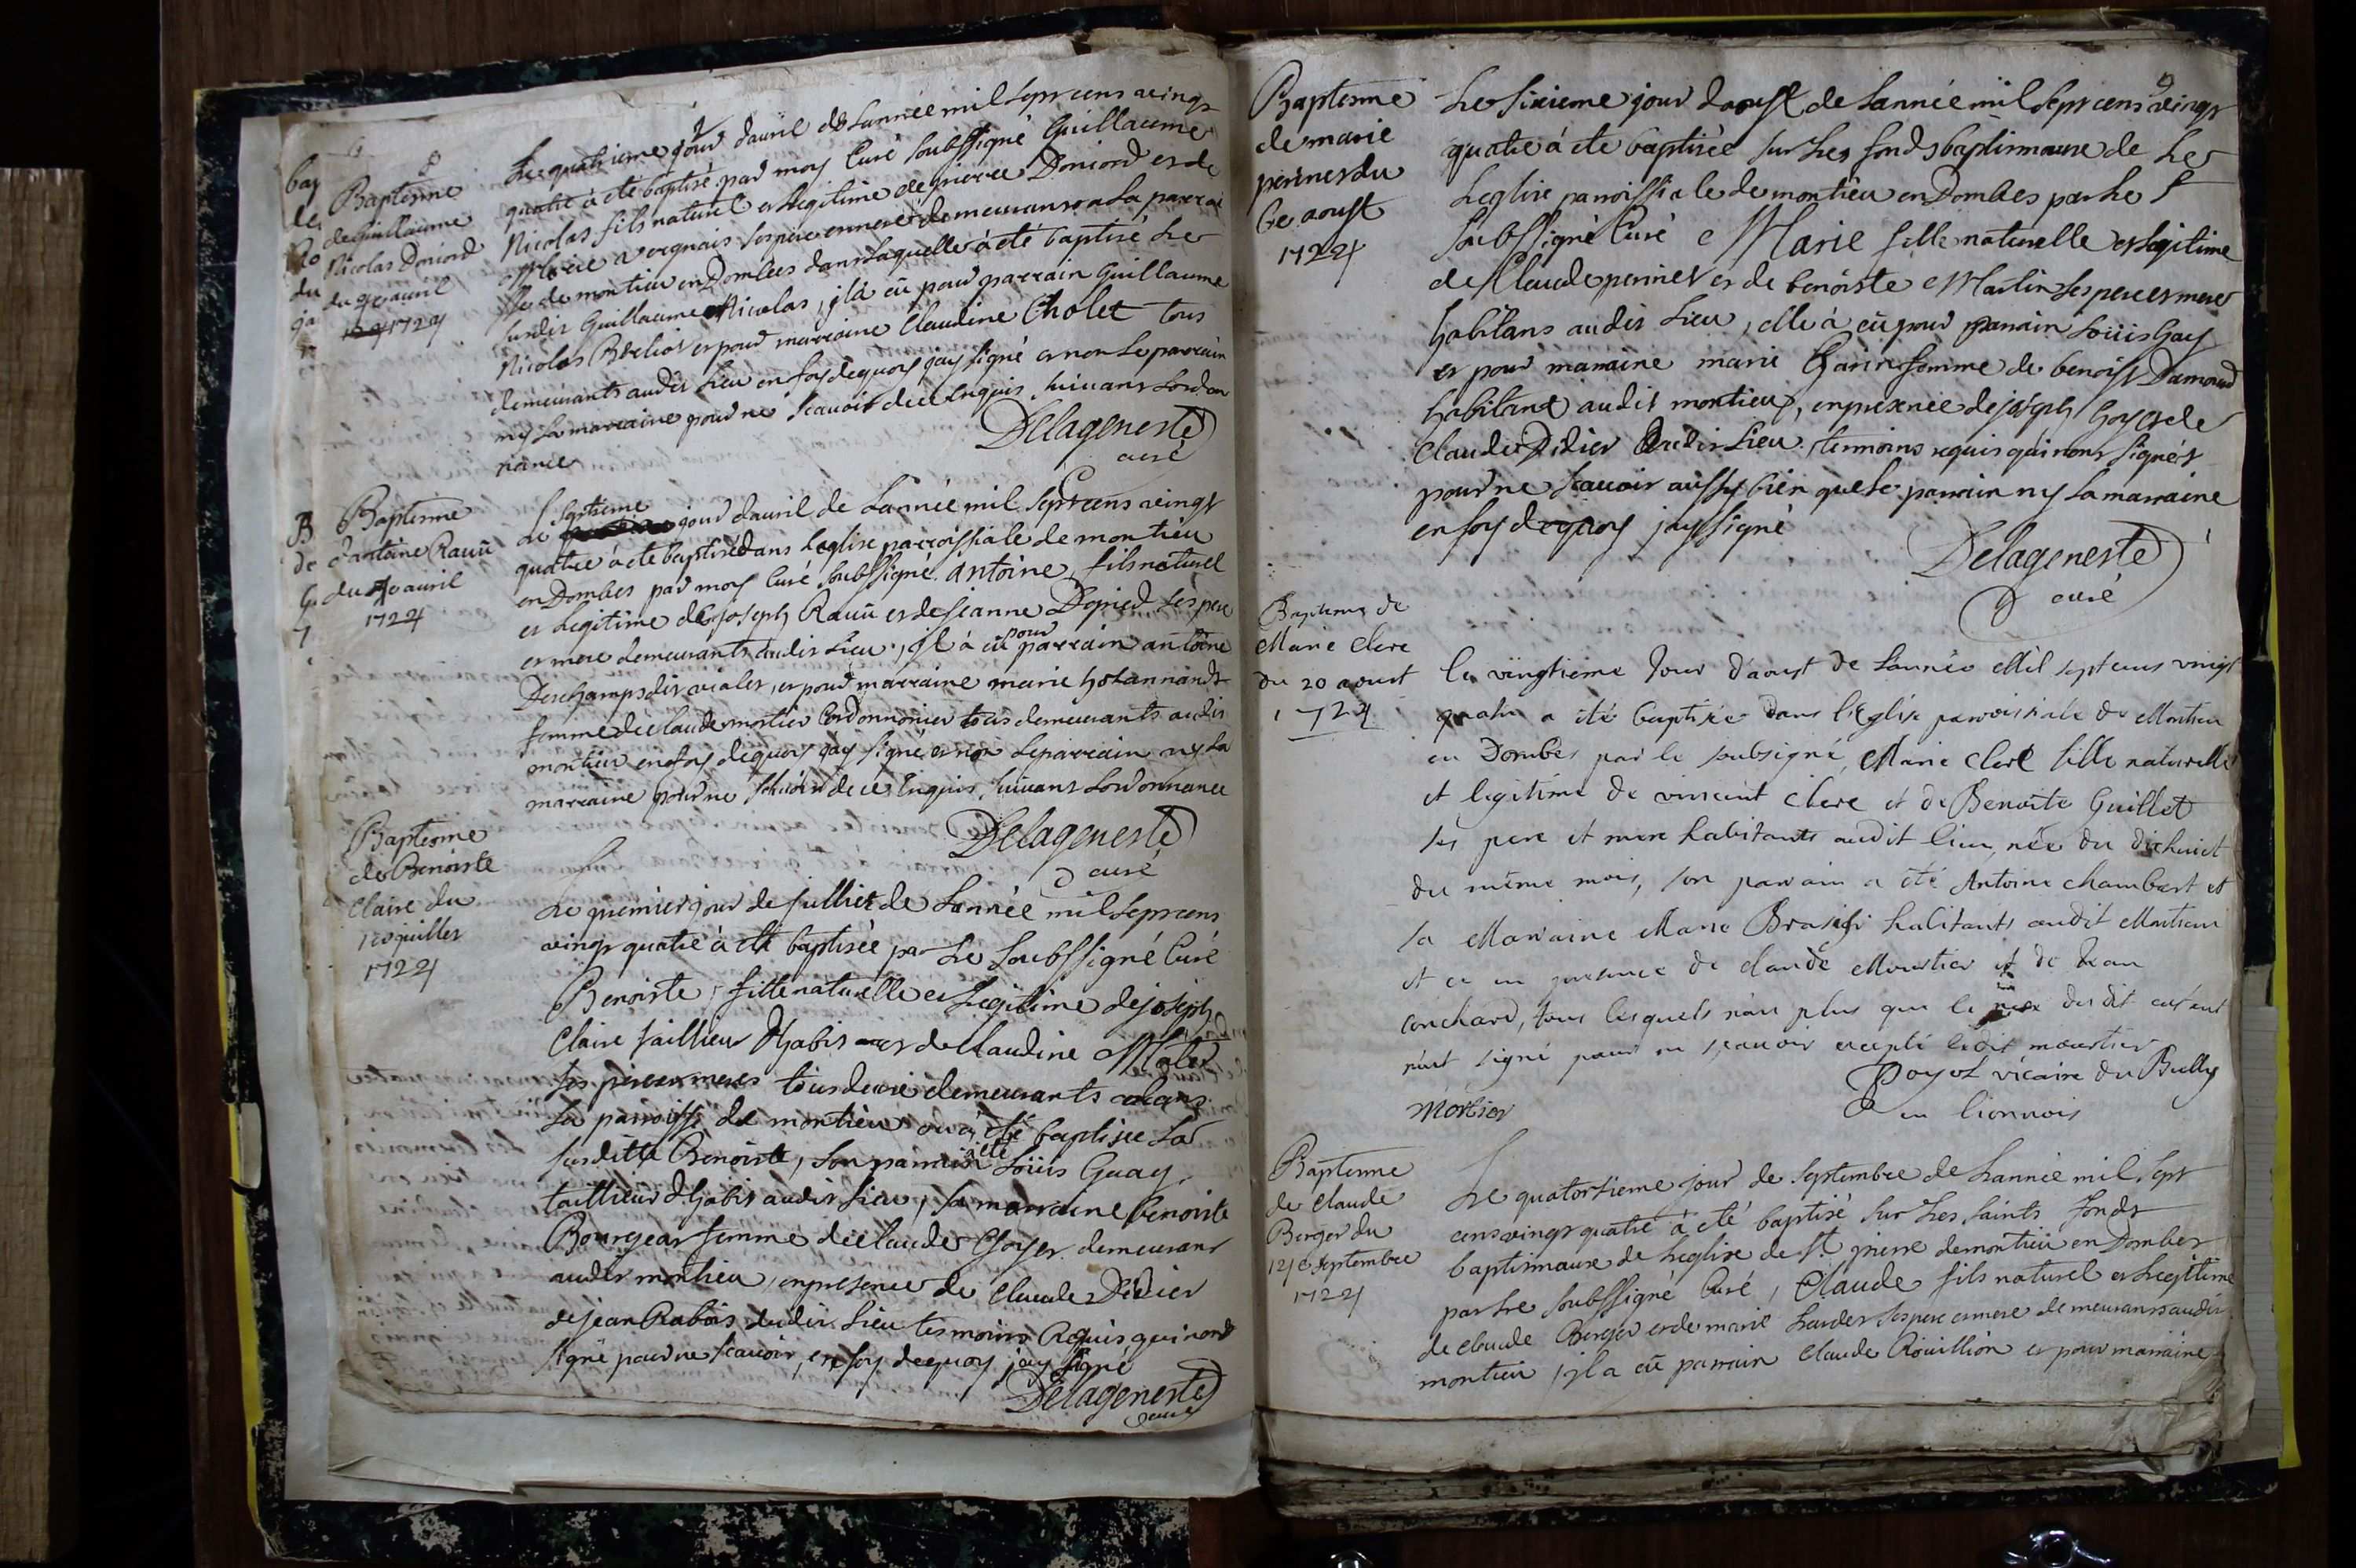 Baptesme
de Guillaume
Nicolas Doniord
du 4e avril
1724
Le quatrieme jour davril de Lannée mil sept cens vingt
quatre à été baptisé par moy Curé soubssigné Guillaume
Nicolas fils naturel et Legitime de pierre Doniord et de
Marie ses pere et mere demeurants a La parroi
sse de montieu en Dombes dans Laquelle à été baptisé Le
susdit Guillaume Nicolas, jl à eû pour parrain Guillaume
Nicolas et pour marraine Claudine Cholet tous
demeurants audit Lieu en foy dequoy jay signé et non Le parrain
ny La marraine pour ne sçavoir de ce Enquis suivant Lordon
nance
Delageneste
curé
Baptesme
d'antoine Ravü
du 7e avril
1724
Le septieme jour davril de Lannée mil sept cens vingt
quatre à été baptisé dans Leglise parroissiale de montieu
en Dombes par moy Curé soubssigné Antoine, fils naturel
et Legitime de joseph Ravü et de jeanne Dopied ses pere
et mere demeurants audit Lieu, jl à eû pour parrain antoine
Deschamps dit vialet, et pour marraine marie
femme de claude mortier Cordonnonier tous demeurants audit
montieu en foy dequoy jay signé et non Le parrain ny La
marraine pour ne scavoir de ce Enquis suivant Lordonnance
Delageneste
curé
Baptesme
de Benoiste
Claire du
1er juillet
1724
Le premier jour de juillet de Lannée mil sept cens
vingt quatre à été baptisée par Le soubssigné Curé
Benoiste, fille naturelle et Legitime de joseph
Claire taillieur dhabit et de Claudine Malet
ses pere et mere tous deux demeurants dans
La parroisse de montieu ou à été baptisée La
susditte Benoiste, son parrain à été Loüis Guay
taillieur dhabit audit Lieu, sa marraine benoiste
Bourgeat femme de claude Goyet demeurant
audit montieu, en presence de Claude Didier
de jean Rabois dudit Lieu tesmoins Requis qui nont
signé pour ne scavoir, en foy dequoy jay signé
Delageneste
curé
Baptesme
de marie
perinet du
6e aoust
1724
Le sixieme jour daoust de Lannée mil sept cens vingt
quatre à été baptisée sur Les fonds baptismaux de Le
Leglise parroissiale de montieu en Dombes par Le s
soubssigné Curé Marie fille naturelle et Legitime
de Claude perinet et de benoiste Martin ses pere et mere
habitans audit Lieu, elle à eû pour parrain Loüis Gay
et pour marraine marie Garin femme de benoist Damoud
habitant audit montieu, en presence de joseph Goyet de
Claude Didier dudit Lieu temoins requis qui nont signés
pour ne scavoir aussy bien que Le parrain ny La marraine
en foy dequoy jay signé
Delageneste
curé
Baptesme de
Marie Clere
du 20 aoust
1724
le vingtieme Jour d'aoust de l'année Mil sept cens vingt
quatre a été baptisée dans l'Eglise parroissiale de Montieu
en Dombes par le soubsigné, Marie Clere fille naturelle
et legitime de vincent Clere et de Benoite Guillet
ses pere et mere habitants audit lieu, née du dixhuict
du même mois, son parrain a été Antoine Chambart et
sa Marraine Marie habitants audit Montieu
et ce en presence de claude Mourtier et de Jean
conchard, tous lesquels non plus que le du dit enfant
n'ont signé pour ne sçavoir excepté ledit mourtier
Mortier
Poyot vicaire du Bully
en lionnois
Baptesme
de claude
Berger du
14e septembre
1724
Le quatorsieme jour de septembre de Lannée mil sept
cens vingt quatre à été baptisé sur Les saints fonds
baptismaux de Leglise de St pierre de montieu en Dombes
par Le soubssigné Curé, Claude fils naturel et Legitime
de claude Berger et de marie Lardet ses pere et mere demeurants audit
montieu, jl a eû parrain Claude Roüillion et pour marraine